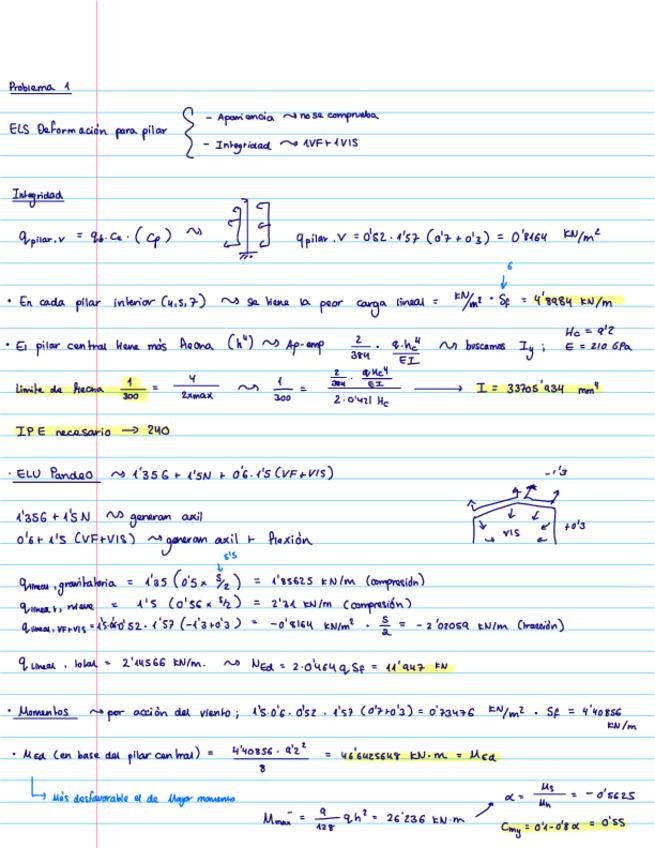 Problema 1
ELS Deformación para pilar { - Apariencia ~> no se comprueba
- Integridad ~> 1VF+1VIS
Integridad
qpilar,v = qb·Ce·(Cp) ~> qpilar,v = 0'52·1'57 (0'7+0'3) = 0'8164 KN/m²
6
· En cada pilar interior (4,5,7) ~> se tiene la peor carga lineal = KN/m² · Sf = 4'8984 KN/m
· El pilar central tiene más flecha (h⁴) ~> Ap-emp 2/384 · q·hc⁴/EI ~> buscamos Iy ; Hc = 9'2 E = 210 GPa
Límite de flecha 1/300 = 4/2xmax ~> 1/300 = (2/384 · qHc⁴/EI)/(2·0'421 Hc) → I = 33705'934 mm⁴
IPE necesario → 240
· ELU Pandeo ~> 1'35G + 1'5N + 0'6·1'5 (VF+VIS)
-1'3
1'35G + 1'5N ~> generan axil
VIS +0'3
0'6+1'5 (VF+VIS) ~> generan axil + flexión
5'5
qlineal, gravitatoria = 1'35 (0'5 x S/2) = 1'85625 KN/m (compresión)
qlineal, nieve = 1'5 (0'56 x S/2) = 2'31 KN/m (compresión)
qlineal, VF+VIS = 1'5·0'6·0'52·1'57 (-1'3+0'3) = -0'8164 KN/m² · S/2 = -2'02059 KN/m (tracción)
qlineal, total = 2'14566 KN/m. ~> NEd = 2·0'464 q Sf = 11'947 KN
· Momentos ~> por acción del viento ; 1'5·0'6·0'52·1'57 (0'7+0'3) = 0'73476 KN/m² · Sf = 4'40856 KN/m
· MEd (en base del pilar central) = 4'40856·9'2²/8 = 46'6425648 KN·m = MEd
Más desfavorable el de Mayor momento
Mmax⁻ = 9/128 qh² = 26'236 KN·m
α = Ms/Mh = -0'5625
Cmy = 0'1-0'8α = 0'55